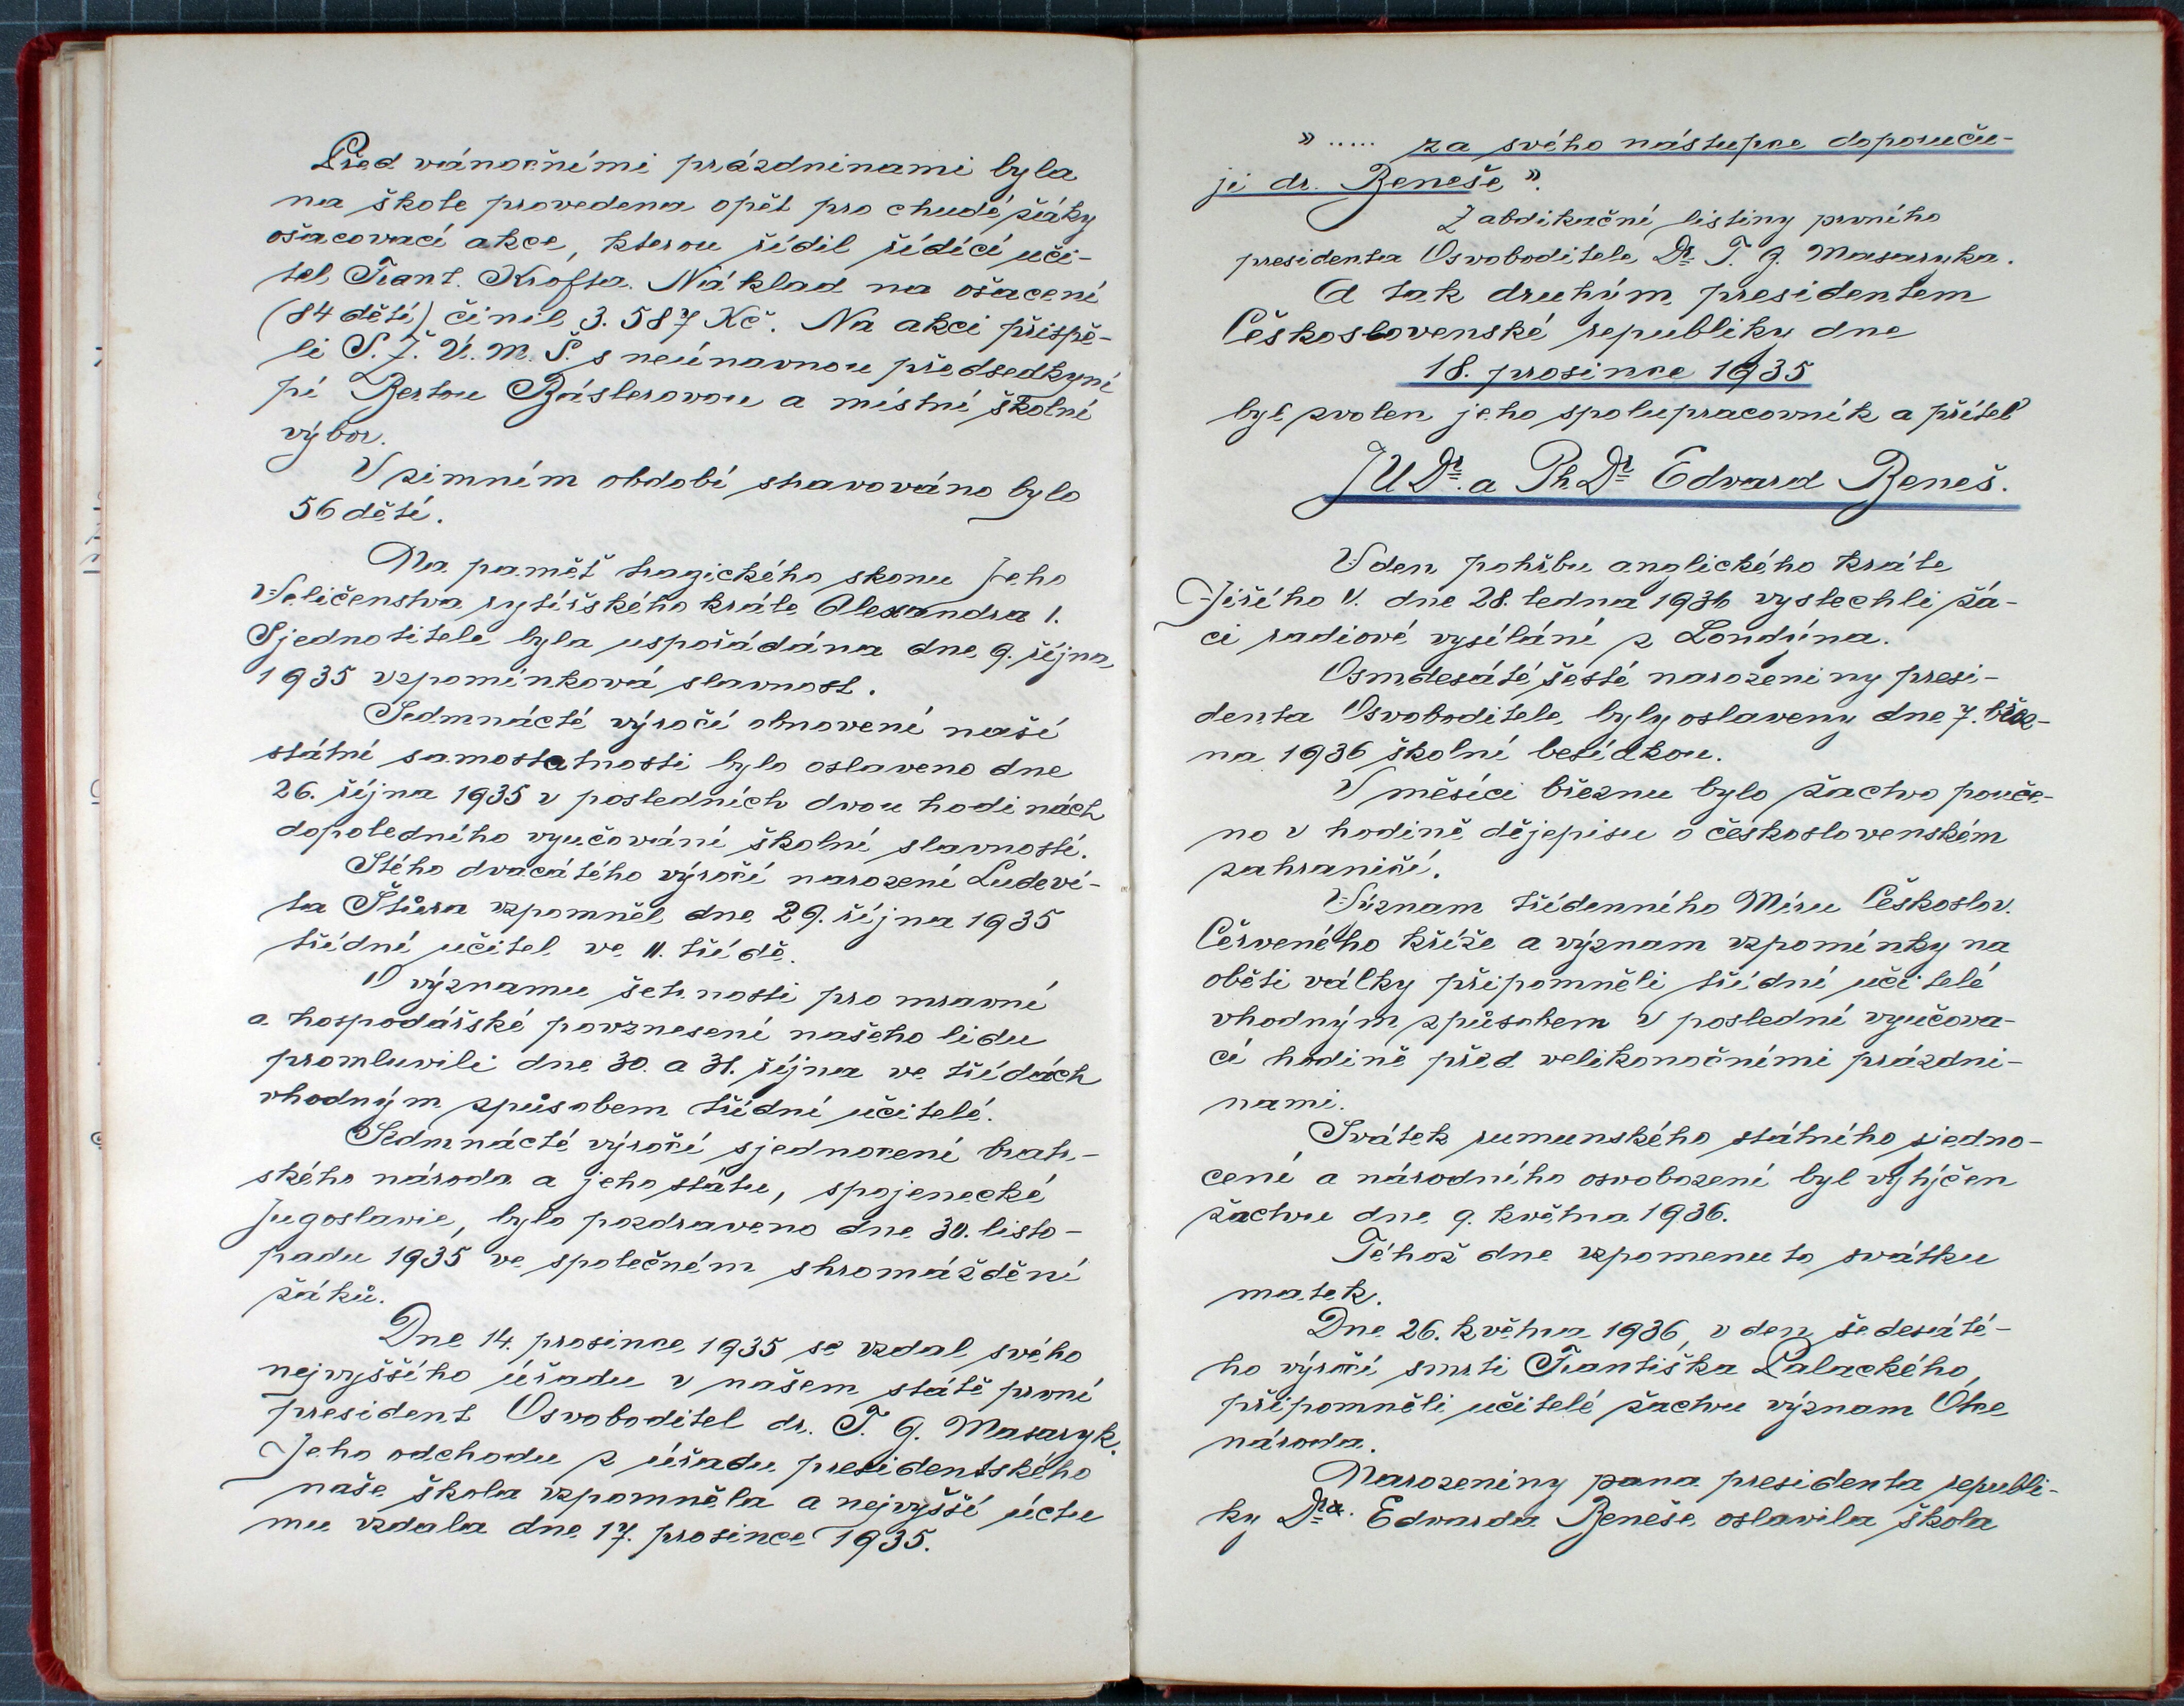 Před vánočními prázdninami byla
na škole provedena opět pro chudé žáky
ošacovací akce, kterou řídil řídící uči-
tel Frant. Krofta. Náklad na ošacení
(84 dětí) činil 3.587 Kč. Na akci přispě-
li S.Ž.Ú.M.Š. s neúnavnou předsedkyní
pí Bertou Báslerovou a místní školní
výbor.
V zimním období stravováno bylo
56 dětí.
Na paměť tragického skonu Jeho
Veličenstva rytířského krále Alexandra I.
Sjednotitele byla uspořádána dne 9. října
1935 vzpomínková slavnost.
Sedmnácté výročí obnovení naší
státní samostatnosti bylo oslaveno dne
26. října 1935 v posledních dvou hodinách
dopoledního vyučování školní slavností.
Stého dvacátého výročí narození Ludeví-
ta Štúra vzpomněl dne 29. října 1935
třídní učitel ve II. třídě.
O významu šetrnosti pro mravní
a hospodářské povznesení našeho lidu
promluvili dne 30. a 31. října ve třídách
vhodným způsobem třídní učitelé.
Sedmnácté výročí sjednocení bratr-
ského národa a jeho státu, spojenecké
Jugoslavie, bylo pozdraveno dne 30. listo-
padu 1935 ve společném shromáždění
žáků.
Dne 14. prosince 1935 se vzdal svého
nejvyššího úřadu v našem státě první
president Osvoboditel dr. T. G. Masaryk.
Jeho odchodu z úřadu presidentského
naše škola vzpomněla a nejvyšší úctu
mu vzdala dne 17. prosince 1935.
» ..... za svého nástupce doporuču-
ji dr. Beneše ».
Z abdikační listiny prvního
presidenta Osvoboditele Dr. T. G. Masaryka.
A tak druhým presidentem
Československé republiky dne
18. prosince 1935
byl zvolen jeho spolupracovník a přítel
JUDr. a PhDr. Edvard Beneš.
V den pohřbu anglického krále
Jiřího V. dne 28. ledna 1936 vyslechli žá-
ci radiové vysílání z Londýna.
Osmdesáté šesté narozeniny presi-
denta Osvoboditele byly oslaveny dne 7. břez-
na 1936 školní besídkou.
V měsíci březnu bylo žactvo pouče-
no v hodině dějepisu o československém
zahraničí.
Význam třídenního Míru Českoslov.
Červeného kříže a význam vzpomínky na
oběti války připomněli třídní učitelé
vhodným způsobem v poslední vyučova-
cí hodině před velikonočními prázdni-
nami.
Svátek rumunského státního sjedno-
cení a národního osvobození byl vytýčen
žactvu dne 9. května 1936.
Téhož dne vzpomenuto svátku
matek.
Dne 26. května 1936, v den šedesáté-
ho výročí smrti Františka Palackého,
připomněli učitelé žactvu význam Otce
národa.
Narozeniny pana presidenta republi-
ky Dra. Edvarda Beneše oslavila škola